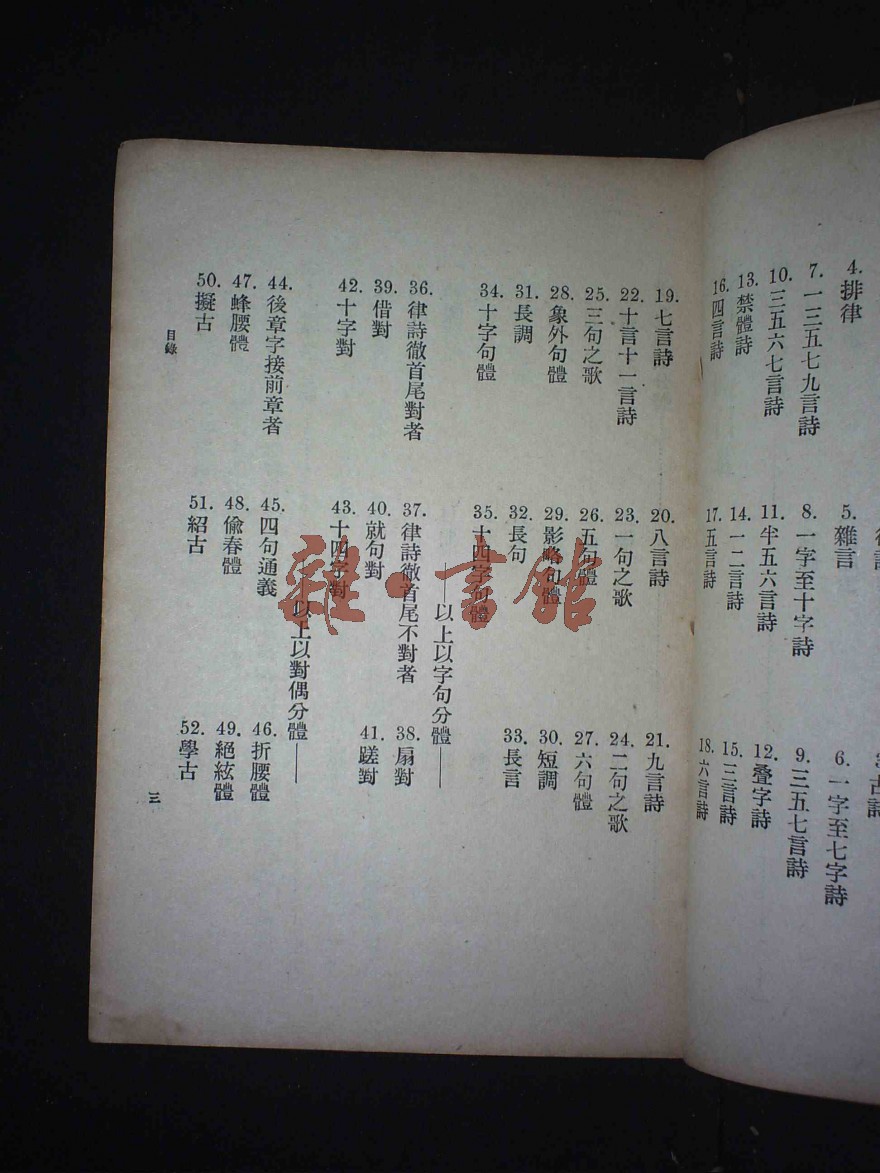 4. 排律 5. 雜言 6. 一字至七字詩
7. 一三五七九言詩 8. 一字至十字詩 9. 三五七言詩
10. 三五六七言詩 11. 半五六言詩 12. 疊字詩
13. 禁體詩 14. 一二言詩 15. 三言詩
16. 四言詩 17. 五言詩 18. 六言詩
19. 七言詩 20. 八言詩 21. 九言詩
22. 十言十一言詩 23. 一句之歌 24. 二句之歌
25. 三句之歌 26. 五句體 27. 六句體
28. 象外句體 29. 影略句體 30. 短調
31. 長調 32. 長句 33. 長言
34. 十字句體 35. 十四字句體
——以上以字句分體——
36. 律詩徹首尾對者 37. 律詩徹首尾不對者 38. 扇對
39. 借對 40. 就句對 41. 蹉對
42. 十字對 43. 十四字對
——以上以對偶分體——
44. 後章字接前章者 45. 四句通義 46. 折腰體
47. 蜂腰體 48. 偷春體 49. 絕絃體
50. 擬古 51. 紹古 52. 學古
目錄
三
雜·書館